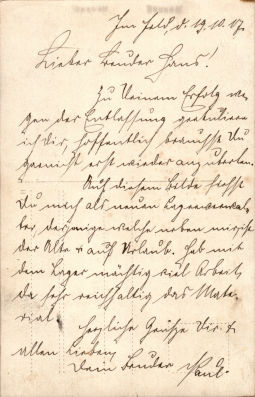 Im Feld d. 19.10.17.
Lieber Bruder Hans!
Zu Deinem Erfolg we-
gen der Entlassung gratuliere
ich Dir, hoffentlich brauchst Du
garnicht erst wieder
Auf diesem Bilde siehst
Du mich als neuen Lagerverwal-
ter derjenige welche neben mir ist
der Alte & auf Urlaub. Hab mit
dem Lager mächtig viel Arbeit,
da sehr reichhaltig das Mate-
rial.
Herzliche Grüße Dir &
allen Lieben
Dein Bruder Paul.